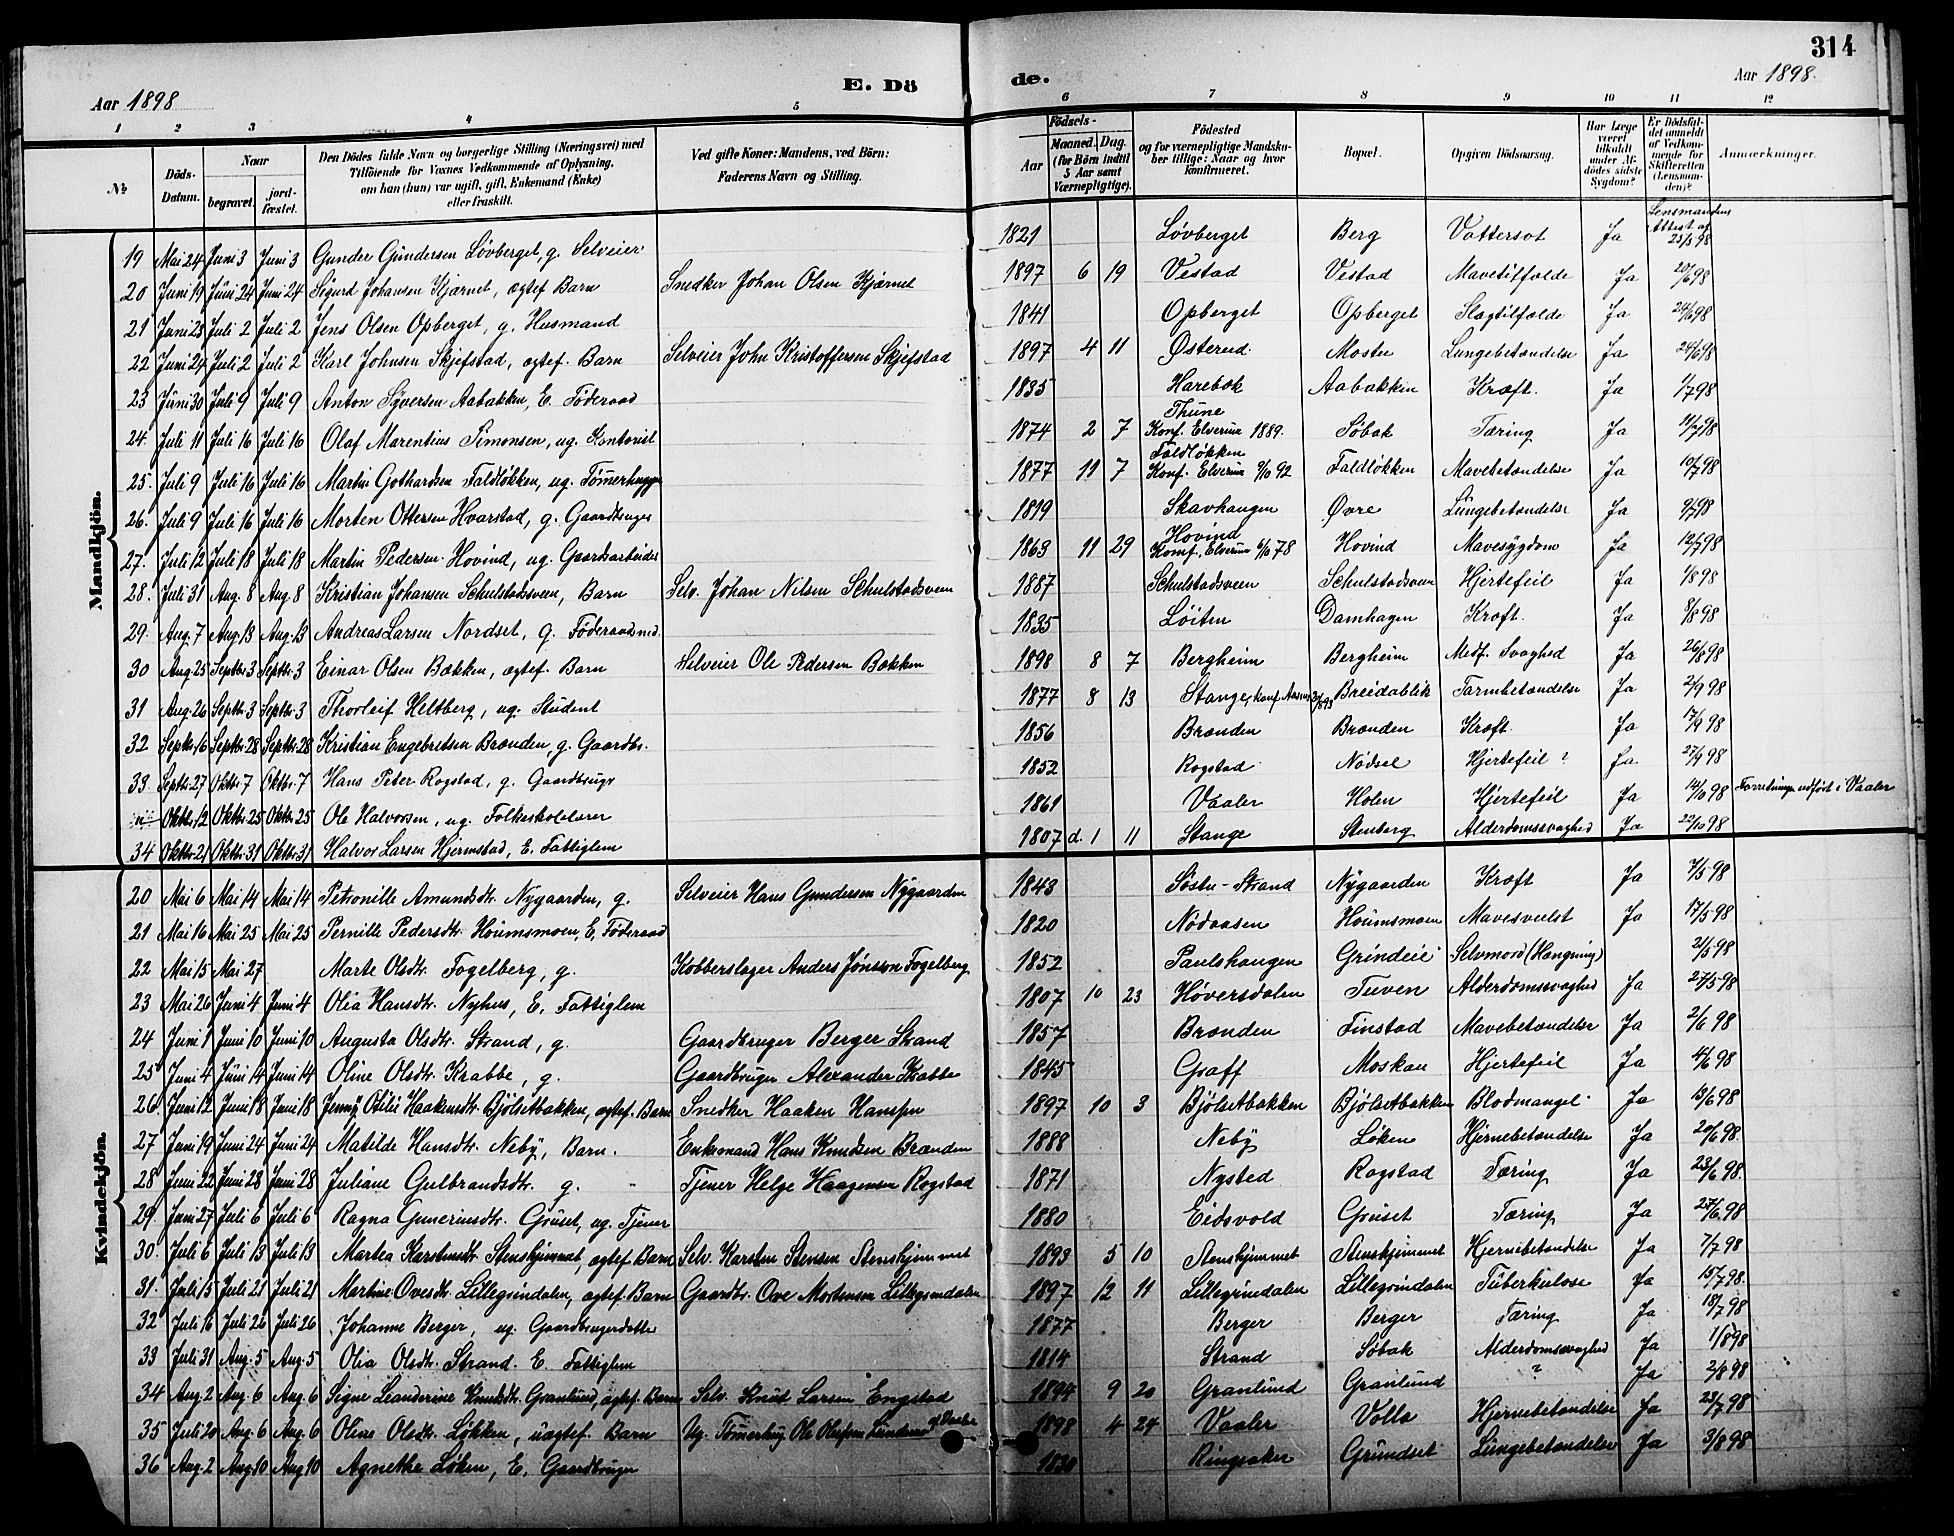 314
E. Dö
de.
Aar 1898
Aar 1898.
1 2 3 4 5 6 7 8 9 10 11 12
№
Döds-Datum.
Naar
begravet.
jord-fæstet.
Den Dödes fulde Navn og borgerlige Stilling (Næringsvei) med
Tilföiende for Voxnes Vedkommende af Oplysning,
om han (hun) var ugift, gift, Enkemand (Enke)
eller fraskilt.
Ved gifte Koner: Mandens, ved Börn:
Faderens Navn og Stilling.
Aar
Födsels-
Maaned. Dag.
(for Börn indtil
5 Aar samt
Værnepligtige).
Födested
og for værnepligtige Mandskaber tillige: Naar og hvor
konfirmeret.
Bopæl.
Opgiven Dödsaarsag.
Har Læge
været
tilkaldt
under Afdödes sidste
Sygdom?
Er Dödsfaldet anmeldt
af Vedkommende for
Skifteretten
(Lensmanden)?
Anmærkninger.
Mandkjön.
19 Mai 24 Juni 3 Juni 3 Gunder Gundersen Lövberget, g. Selveier 1821 Løvberget Berg Vattersot Ja Lensmandens Attest af 25/5 98
20 Juni 19 Juni 24 Juni 24 Sigurd Johansen Kjærnet, ægtef Barn Snedker Johan Olsen Kjærnet 1897 6 19 Vestad Vestad Mavetilfælde Ja 20/6 98
21 Juni 23 Juli 2 Juli 2 Jens Olsen Opberget, g. Husmand 1841 Opberget Opberget Slagtilfælde Ja 24/6 98
22 Juni 24 Juli 2 Juli 2 Karl Johnsen Skjefstad, ægtef. Barn Selveier John Kristoffersen Skjefstad 1897 4 11 Østerud Mostu Lungebetændelse Ja 24/6 98
23 Juni 30 Juli 9 Juli 9 Anton Syversen Aabakken, E. Föderaad 1835 Harebæk Aabakken Kræft. Ja 1/7 98
24. Juli 11 Juli 16 Juli 16 Olaf Marentius Simonsen, ug. Kontorist 1874 2 7 Thune Konf. Elverum 1889. Søbak Tæring Ja 11/7 98
25. Juli 9 Juli 16 Juli 16 Martin Gothardsen Faldløkken, ug. Tømmerhugger 1877 11 7 Faldløkken Konf. Elverum 9/10 92 Faldløkken Mavebetændelse Ja 10/7 98
26. Juli 9 Juli 16 Juli 16 Morten Ottersen Hvarstad, g. Gaardbruger 1819 Skavhaugen Øvre Lungebetændelse Ja 9/7 98
27. Juli 12 Juli 18 Juli 18 Martin Pedersen Hovind, ug. Gaardsarbeider 1863 11 29 Hovind Konf. Elverum 6/10 78 Hovind Mavesygdom Ja 12/7 98
28. Juli 31 Aug. 8 Aug 8 Kristian Johansen Schulstadsveen, Barn Selv. Johan Nilsen Schulstadsveen 1887 Schulstadsveen Schulstadsveen Hjertefeil Ja 1/8 98
29. Aug. 7 Aug. 13 Aug. 13 Andreas Larsen Nordset, g. Föderaadsmd. 1835 Løiten Damhagen Kræft. Ja 8/8 98
30 Aug. 25 Septbr. 3 Septbr. 3 Einar Olsen Bækken, ægtef Barn Selveier Ole Pedersen Bækken 1898 8 7 Bergheim Bergheim Medf. Svaghed Ja 26/8 98
31 Aug. 26 Septbr. 3 Septbr. 3 Thorleif Heltberg, ug. Student 1877 8 13 Stange, konf. Breidablik Tarmbetændelse Ja 2/9 98
32 Septbr. 16 Septbr. 28 Septbr. 28 Kristian Engebretsen Brænden, g. Gaardbr. 1856 Brænden Brænden Kræft. Ja 17/9 98
33 Septbr. 27 Oktbr. 7 Oktbr. 7 Hans Peter Rogstad, g. Gaardbruger 1852 Rogstad Nødsel Hjertefeil ? Ja 27/9 98
Oktbr. 12 Oktbr. 25 Oktbr. 25 Ole Halvorsen, ug. Folkeskolelærer 1861 Vaaler Holen Hjertefeil Ja 14/10 98 Forretningen udført i Vaaler
34 Oktbr. 21 Oktbr. 31 Oktbr. 31 Halvor Larsen Hjermstad, E. Fattiglem 1807 d. 1 11 Stange Stenberg Alderdomssvaghed Ja 22/10 98
Kvindekjön.
20 Mai 6 Mai 14 Mai 14 Petronille Amundsdtr. Nygaarden, g. Selveier Hans Gundersen Nygaarden 1843 Søstu-Strand Nygaarden Kræft Ja 7/5 98
21 Mai 16 Mai 25 Mai 25 Pernille Pedersdtr. Houmsmoen, E, Föderaad 1820 Nödaasen Houmsmoen Mavesvulst Ja 17/5 98
22 Mai 15 Mai 27 Marte Olsdtr. Fogelberg, g. Kobberslager Anders Jönsson Fogelberg 1852 Paulshaugen Grindeie Selvmord (Hængning) 21/5 98
23 Mai 26 Juni 4 Juni 4 Olia Hansdtr. Nyhus, E. Fattiglem 1807 10 23 Høversdalen Tuven Alderdomssvaghed Ja 27/5 98
24 Juni 1 Juni 10 Juni 10 Augusta Olsdtr. Strand, g. Gaardbruger Berger Strand 1857 Brænden Finstad Mavebetændelse Ja 2/6 98
25 Juni 4 Juni 14 Juni 14 Oline Olsdtr. Krabbe, g. Gaardbruger Alexander Krabbe 1845 Graff Moskau Hjertefeil Ja 4/6 98
26 Juni 12 Juni 18 Juni 18 Jenny Otilie Haakensdtr. Bjölsetbakken, ægtef. Barn Snedker Haaken Hanssen 1897 10 3 Bjölsetbakken Bjölsetbakken Blodmangel Ja 13/6 98
27 Juni 19 Juni 24 Juni 24 Matilde Hansdtr. Neby, Barn. Enkemand Hans Knudsen Brænden 1888 Neby Løken Hjernebetændelse Ja 20/6 98.
28 Juni 22 Juni 28 Juni 28 Juliane Gulbrandsdtr. g. Tjener Helge Haagensen Rogstad 1871 Nysted Rogstad Tæring Ja 23/6 98.
29. Juni 27 Juli 6 Juli 6 Ragna Guneriusdtr. Gruset, ug. Tjener 1880 Eidsvold Gruset Tæring Ja 27/6 98
30. Juli 6 Juli 13 Juli 13 Martea Karstensdtr. Stenshjemmet, ægtef. Barn Selv. Karsten Stensen Stenshjemmet 1893 5 10 Stenshjemmet Stenshjemmet Hjernebetændelse Ja 7/7 98
31. Juli 15 Juli 21 Juli 21 Martine Ovesdtr. Lillegrindalen, ægtef. Barn Gaardbr. Ove Mortensen Lillegrindalen 1897 12 11 Lillegrindalen Lillegrindalen Tuberkulose Ja 15/7 98.
32 Juli 16 Juli 26 Juli 26 Johanne Berger, ug. Gaardbrugerdatter 1877 Berger Berger Tæring Ja 18/7 98
33 Juli 31 Aug. 5 Aug. 5 Olia Olsdtr. Strand. E. Fattiglem 1814 Strand Søbak Alderdomssvaghed Ja 1/8 98
34 Aug. 2 Aug. 6 Aug. 6 Signe Leanderine Knudsdtr. Granlund, ægtef. Barn Selv. Knud Larsen Engstad 1894 9 20 Granlund Granlund ? Ja 2/8 98
35 Juli 20 Aug. 6 Aug. 6 Oline Olsdtr. Løkken, uægtef. Barn Ug. Tømmerhug. Ole Olessen Lundemo af Vaaler 1898 4 24 Vaaler Volla Hjernebetændelse Ja 23/7 98
36 Aug. 2 Aug. 10 Aug 10 Agnethe Løken, E. Gaardbruger 1830 Ringsaker Grundset Lungebetændelse Ja 3/8 98